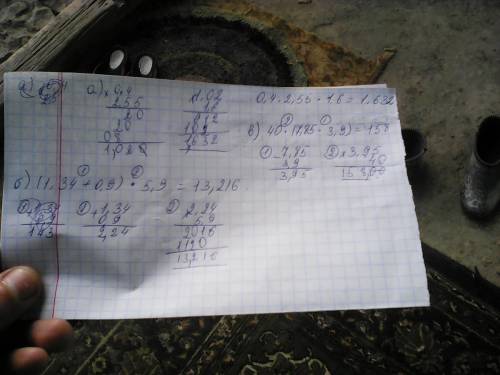 а) × 0,4
2,55
20
20
08
1,020
1,02
1632
0,4 · 2,55 · 1,6 = 1,632
в) 40 · (7,85 - 3,9) = 158
① - 7,85
3,9
3,95
② × 3,95
40
158,00
б) (1,34 + 0,9) · 5,9 = 13,216
① + 1,34
0,9
2,24
② 2,24
5,9
2016
1120
13,216